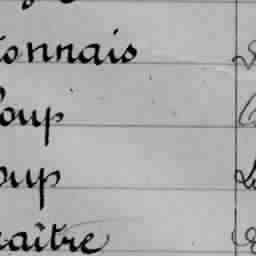 onnais
oup
oup
aître